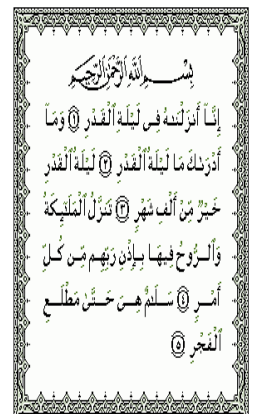 بِسْمِ ٱللَّهِ ٱلرَّحْمَٰنِ ٱلرَّحِيمِ
إِنَّآ أَنزَلْنَٰهُ فِى لَيْلَةِ ٱلْقَدْرِ ۝١ وَمَآ
أَدْرَىٰكَ مَا لَيْلَةُ ٱلْقَدْرِ ۝٢ لَيْلَةُ ٱلْقَدْرِ
خَيْرٌ مِّنْ أَلْفِ شَهْرٍ ۝٣ تَنَزَّلُ ٱلْمَلَٰٓئِكَةُ
وَٱلرُّوحُ فِيهَا بِإِذْنِ رَبِّهِم مِّن كُلِّ
أَمْرٍ ۝٤ سَلَٰمٌ هِىَ حَتَّىٰ مَطْلَعِ
ٱلْفَجْرِ ۝٥